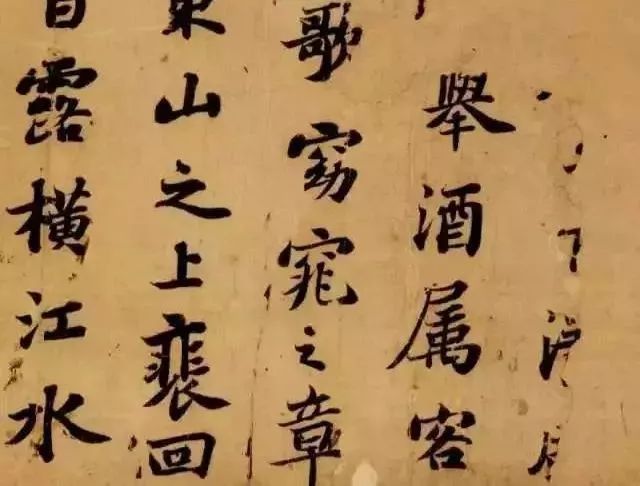 舉酒属客
歌窈窕之章
東山之上裴回
白露橫江水